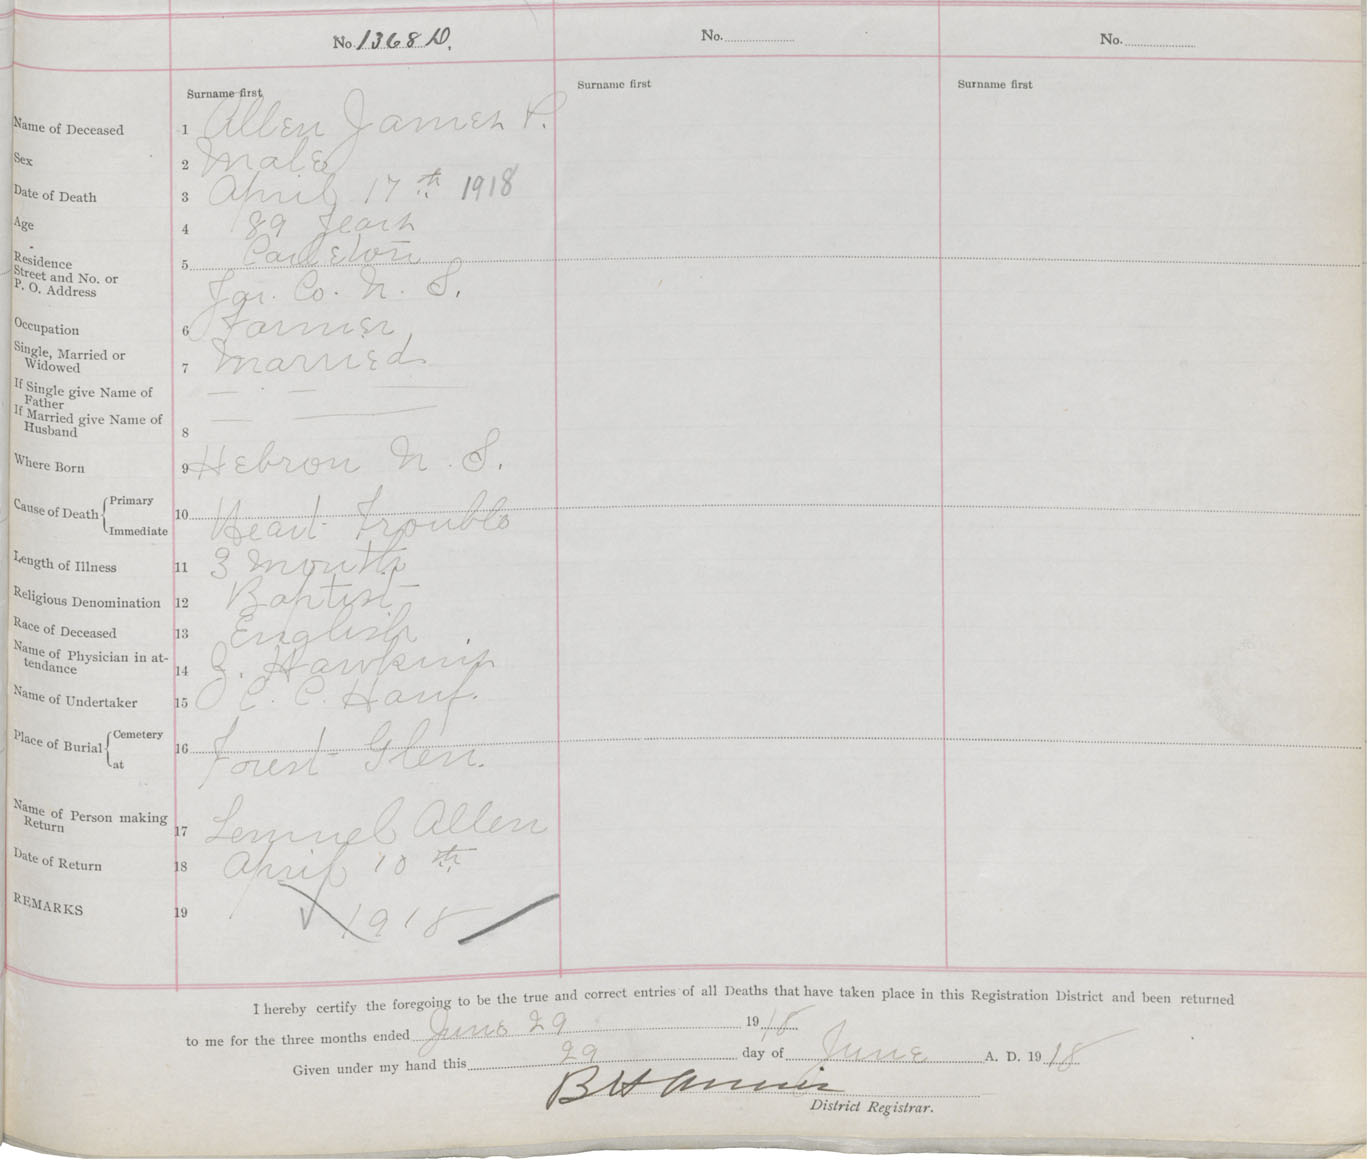 No. 1368 D.
No.
No.
Surname first
Surname first
Surname first
Name of Deceased 1 Allen James P.
Sex 2 Male
Date of Death 3 April 17th 1918
Age 4 89 Years
Residence 5 Carleton
Street and No. or
P. O. Address Yar. Co. N. S.
Occupation 6 Farmer
Single, Married or
Widowed 7 Married
If Single give Name of
Father
If Married give Name of
Husband 8
Where Born 9 Hebron N. S.
Cause of Death Primary
10 Heart Trouble
Immediate
Length of Illness 11 3 months
Religious Denomination 12 Baptist
Race of Deceased 13 English
Name of Physician in at-
tendance 14 Z. Hawkins
Name of Undertaker 15 C. C.
Place of Burial Cemetery
16 Forest Glen.
at
Name of Person making
Return 17 Lemuel Allen
Date of Return 18 April 10th
REMARKS 19 1918
I hereby certify the foregoing to be the true and correct entries of all Deaths that have taken place in this Registration District and been returned
to me for the three months ended June 29 1918
Given under my hand this 29 day of June A. D. 1918
B H
District Registrar.